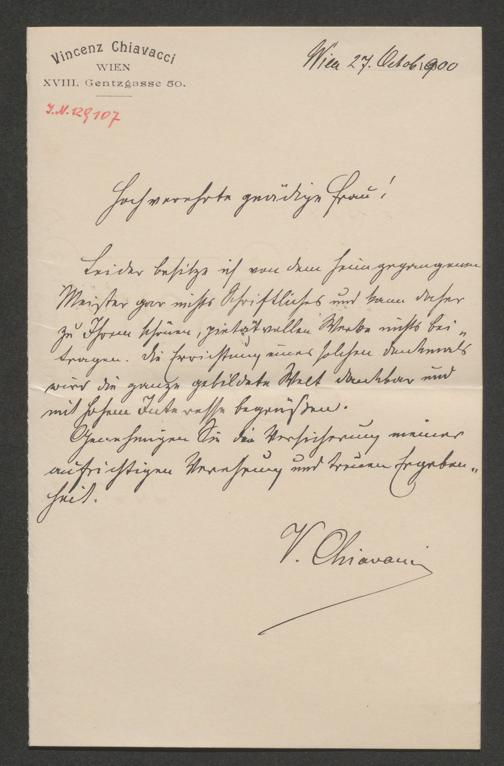 Vincenz Chiavacci
WIEN
XVIII. Gentzgasse 50.
Wien 27. Octob. 1900
I.N. 129107
Hochverehrte gnädige Frau!
Leider besitze ich von dem heimgegangenen
Meister gar nichts Schriftliches und kann daher
zu Ihrem schönen, pietätvollen Werke nichts bei-
tragen. Die Errichtung eines solchen Denkmals
wird die ganze gebildete Welt dankbar und
mit hohem Interesse begrüßen.
Genehmigen Sie die Versicherung meiner
aufrichtigen Verehrung und treuen Ergeben-
heit.
V. Chiavacci